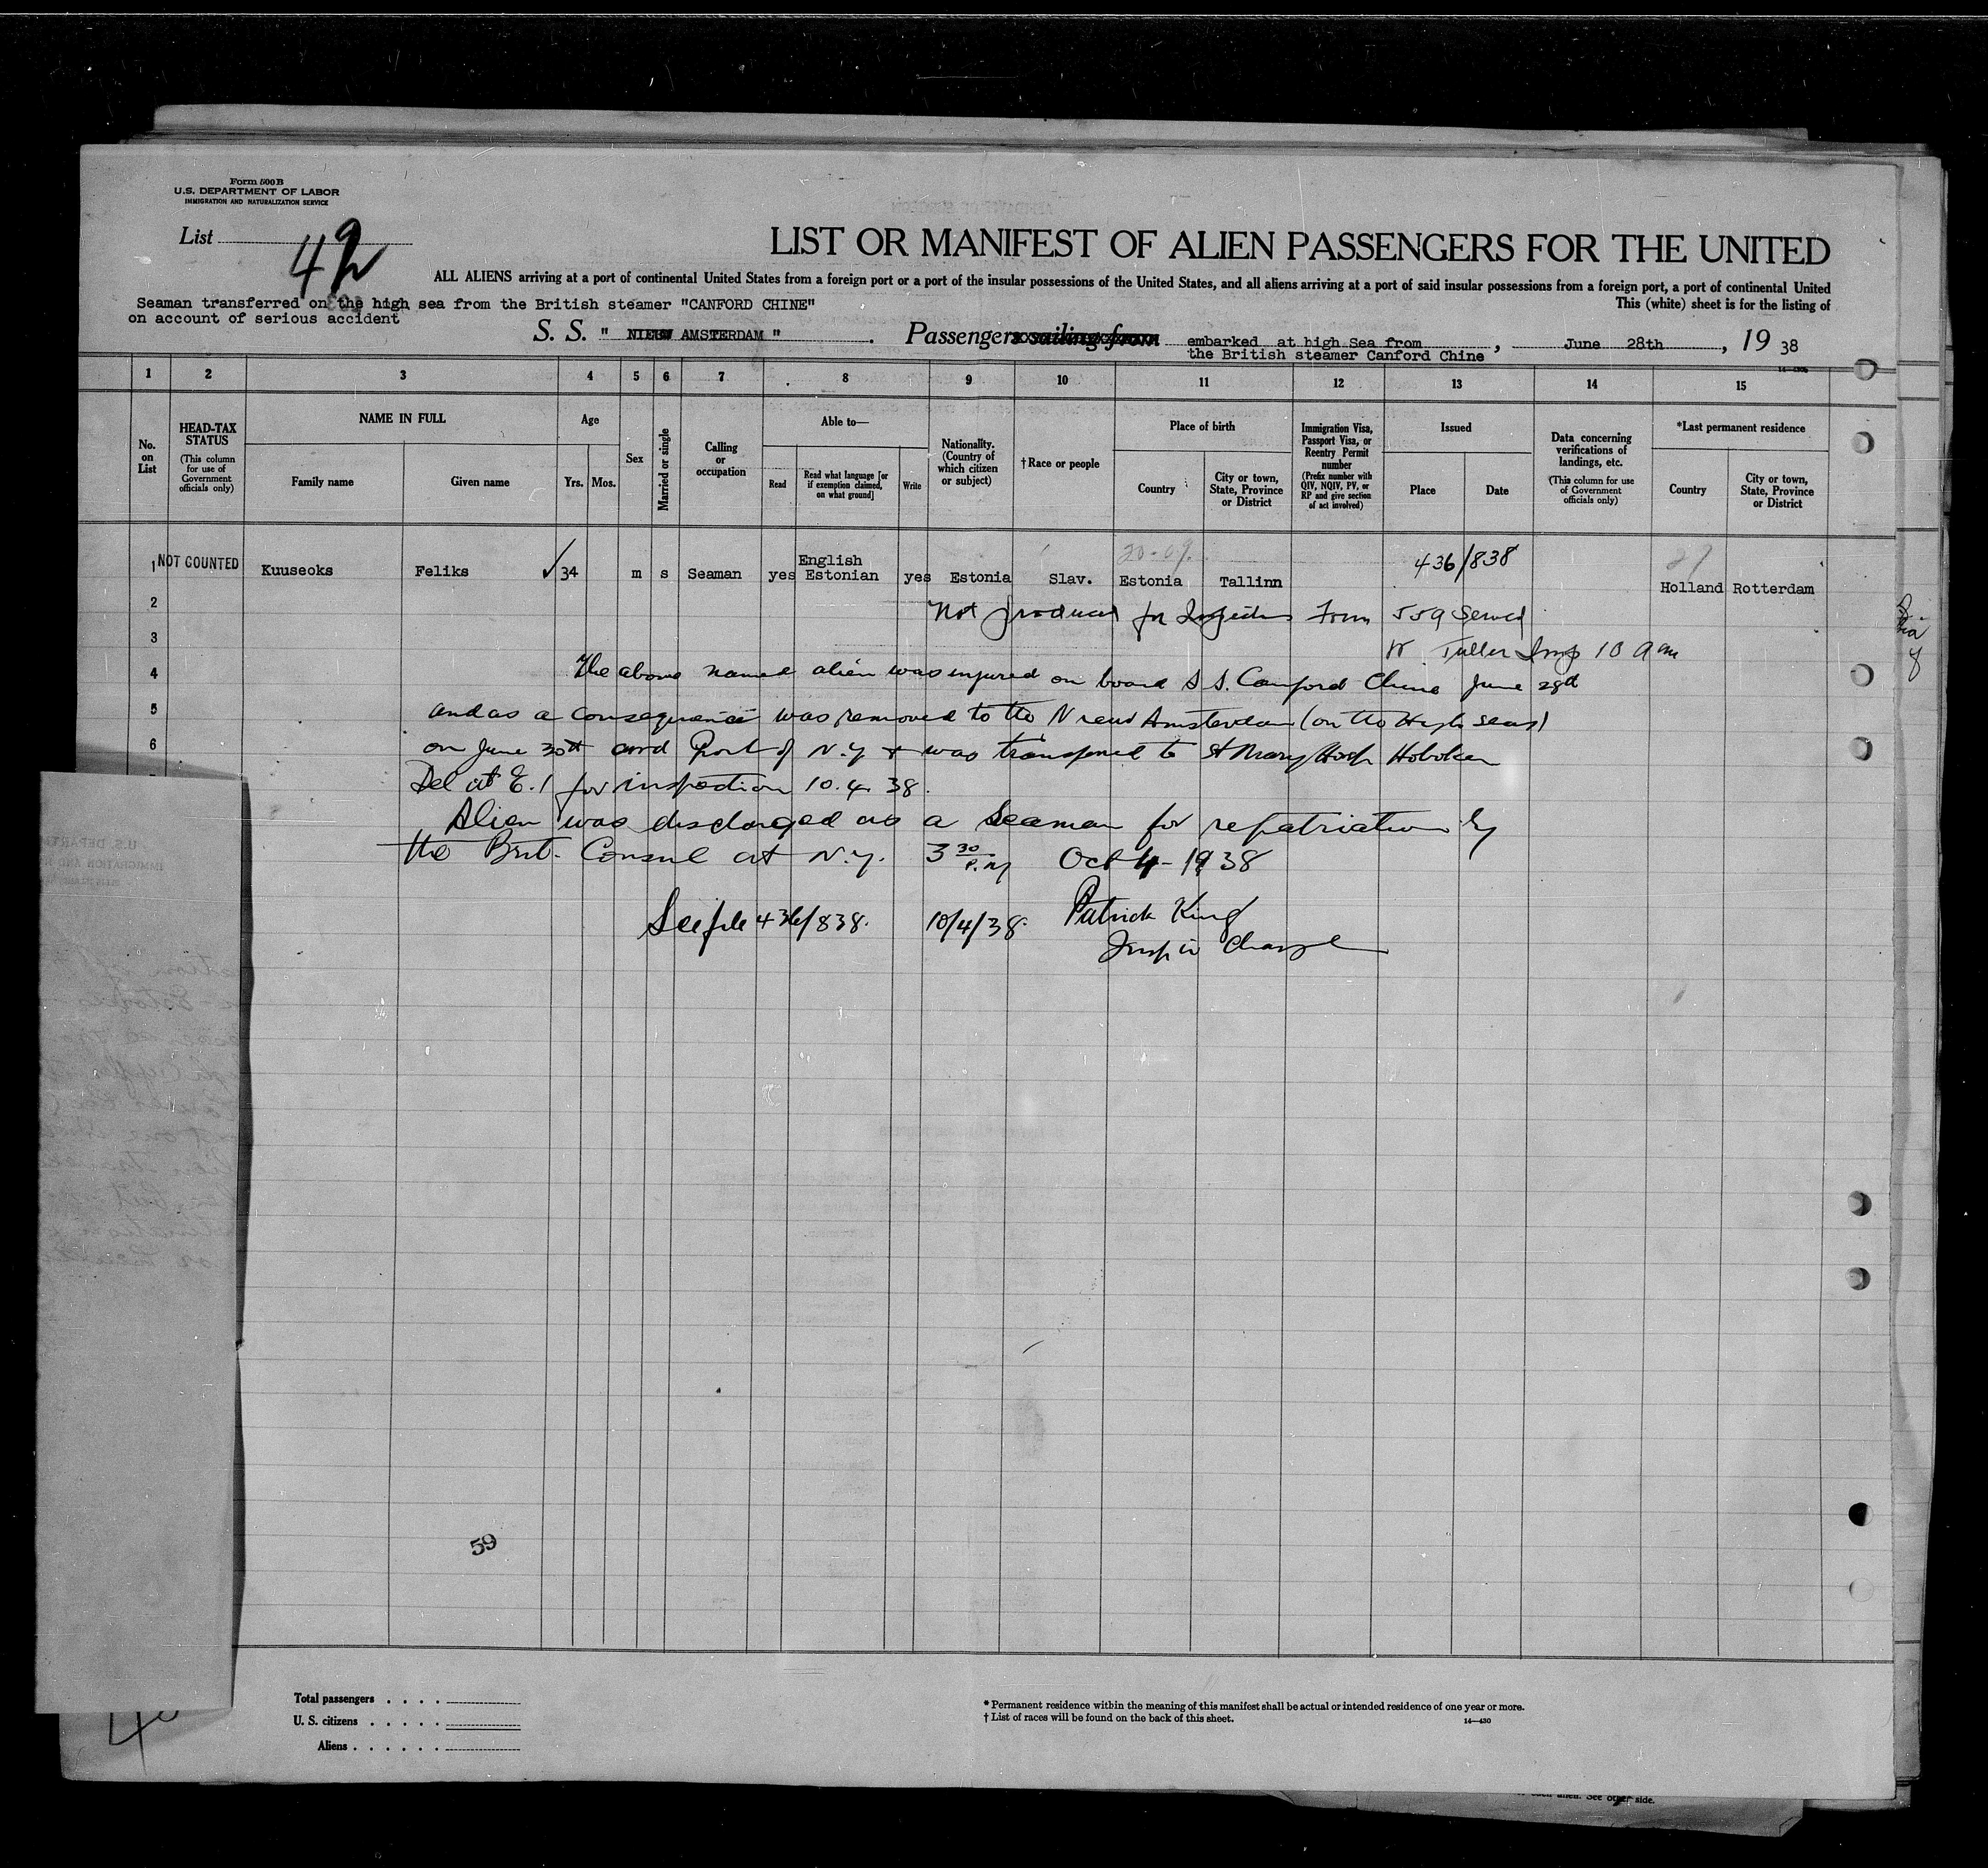 Form 500B
U.S. DEPARTMENT OF LABOR
IMMIGRATION AND NATURALIZATION SERVICE
List 42
LIST OR MANIFEST OF ALIEN PASSENGERS FOR THE UNITED
ALL ALIENS arriving at a port of continental United States from a foreign port or a port of the insular possessions of the United States, and all aliens arriving at a port of said insular possessions from a foreign port, a port of continental United
Seaman transferred on the high sea from the British steamer "CANFORD CHINE"
on account of serious accident
This (white) sheet is for the listing of
S. S. " NIEUW AMSTERDAM " . Passengers sailing from embarked at high Sea from , June 28th , 19 38
the British steamer Canford Chine
1 2 3 4 5 6 7 8 9 10 11 12 13 14 15
No. on List
HEAD-TAX STATUS (This column for use of Government officials only)
NAME IN FULL
Family name
Given name
Age
Yrs.
Mos.
Sex
Married or single
Calling or occupation
Able to—
Read
Read what language [or if exemption claimed, on what ground]
Write
Nationality. (Country of which citizen or subject)
†Race or people
Place of birth
Country
City or town, State, Province or District
Immigration Visa, Passport Visa, or Reentry Permit number (Prefix number with QIV, NQIV, PV, or RP and give section of act involved)
Issued
Place
Date
Data concerning verifications of landings, etc. (This column for use of Government officials only)
*Last permanent residence
Country
City or town, State, Province or District
1 NOT COUNTED Kuuseoks Feliks ✓ 34 m s Seaman yes English Estonian yes Estonia Slav. Estonia Tallinn 436/838 Holland Rotterdam
20-09.
27
2 Not produced for Inspection Form 559 Served
3 Tuller Insp 10 am
4 The above named alien was injured on board S S. Canford Chine June 28th
5 and as a consequence was removed to the Nieuw Amsterdam (on the High seas)
6 on June 30th arrd Port of N.Y + was transferred to St Mary Hosp Hoboken
Del at E.I for inspection 10.4.38.
Alien was discharged as a Seaman for repatriation by
the Brit. Consul at N.Y. 3 30 P.M Oct 4 - 1938
See file 436/838. 10/4/38. Patrick King
Insp in Charge
59
Total passengers . . . .
U. S. citizens . . . . .
Aliens . . . . . .
* Permanent residence within the meaning of this manifest shall be actual or intended residence of one year or more.
† List of races will be found on the back of this sheet.
14—430
See other side.